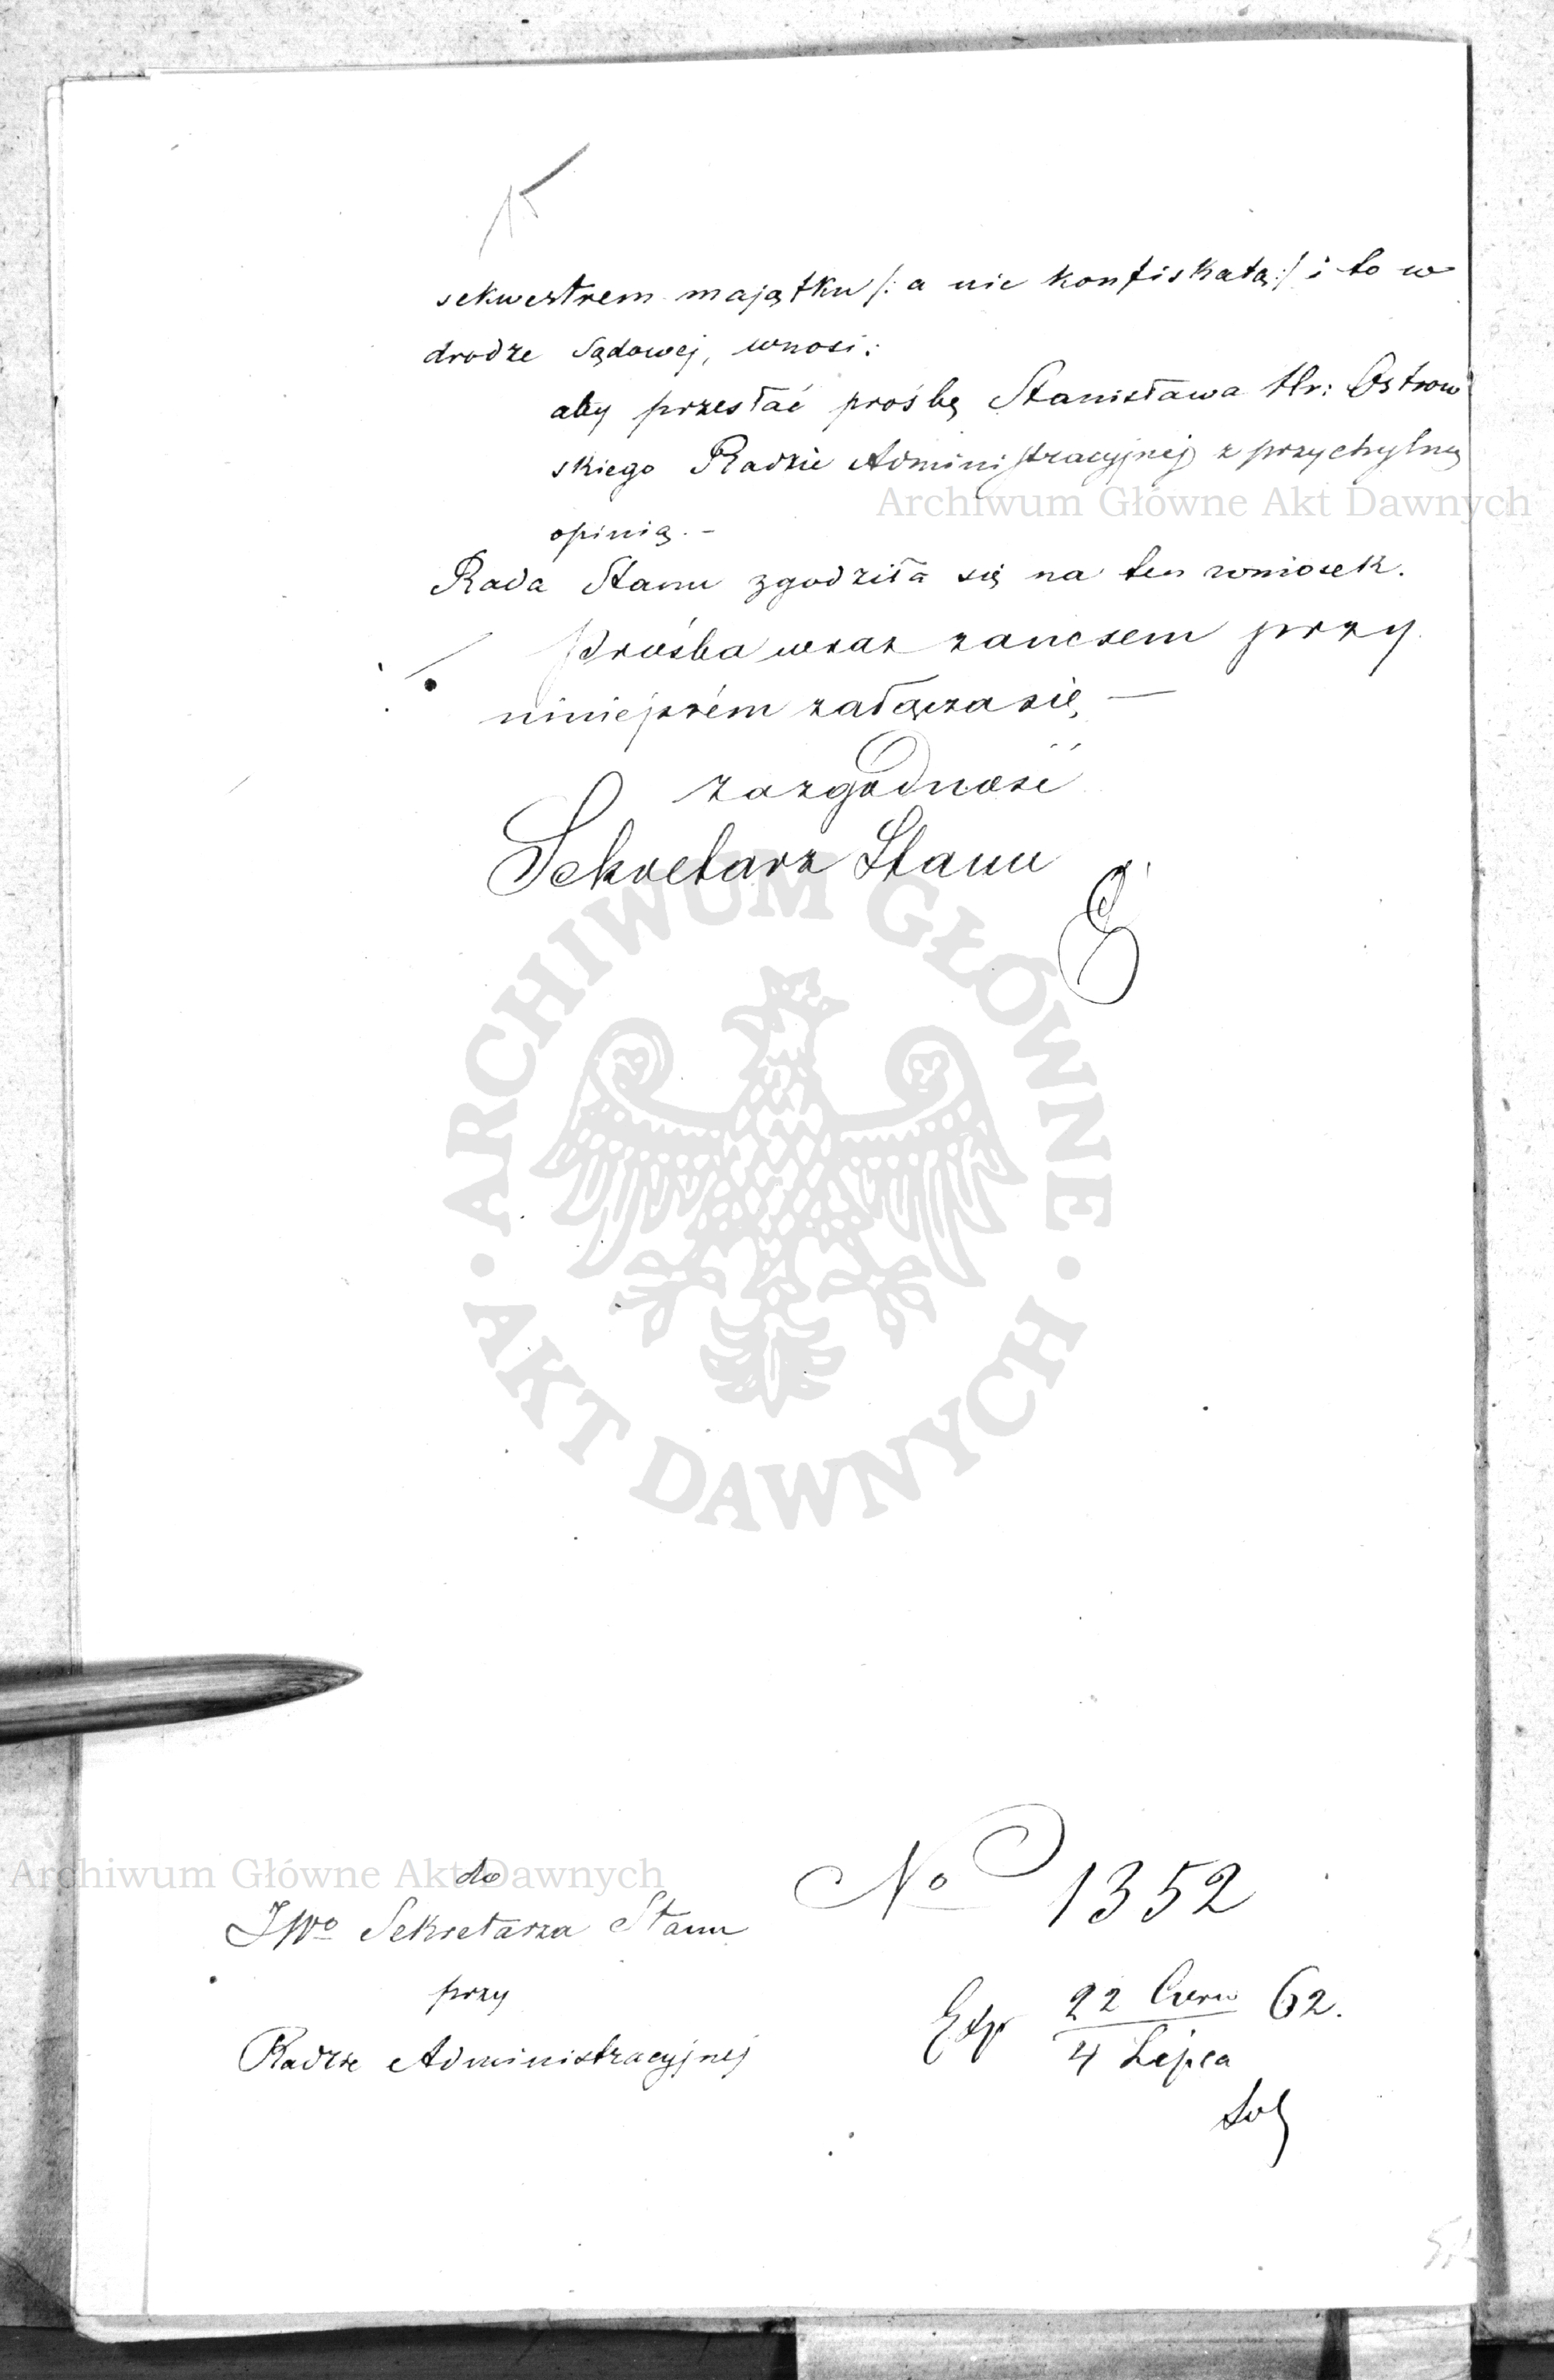 15
sekwestrem majątku /: a nie konfiskatą :/ i to w
drodze sądowej, wnosi:
aby przesłać prośbę Stanisława Hr: Ostrow
skiego Radzie Administracyjnej z przychylną
Archiwum Główne Akt Dawnych
opinią. -
Rada Stanu zgodziła się na ten wniosek.
Prośba wraz z anexem przy
niniejszém załącza się, —
za zgodność
Sekretarz Stanu
ARCHIWUM GŁÓWNE
AKT DAWNYCH
Archiwum Główne Akt Dawnych
do
JWo Sekretarza Stanu
przy
Radzie Administracyjnej
No 1352
Exp 22 Czerw 62.
4 Lipca